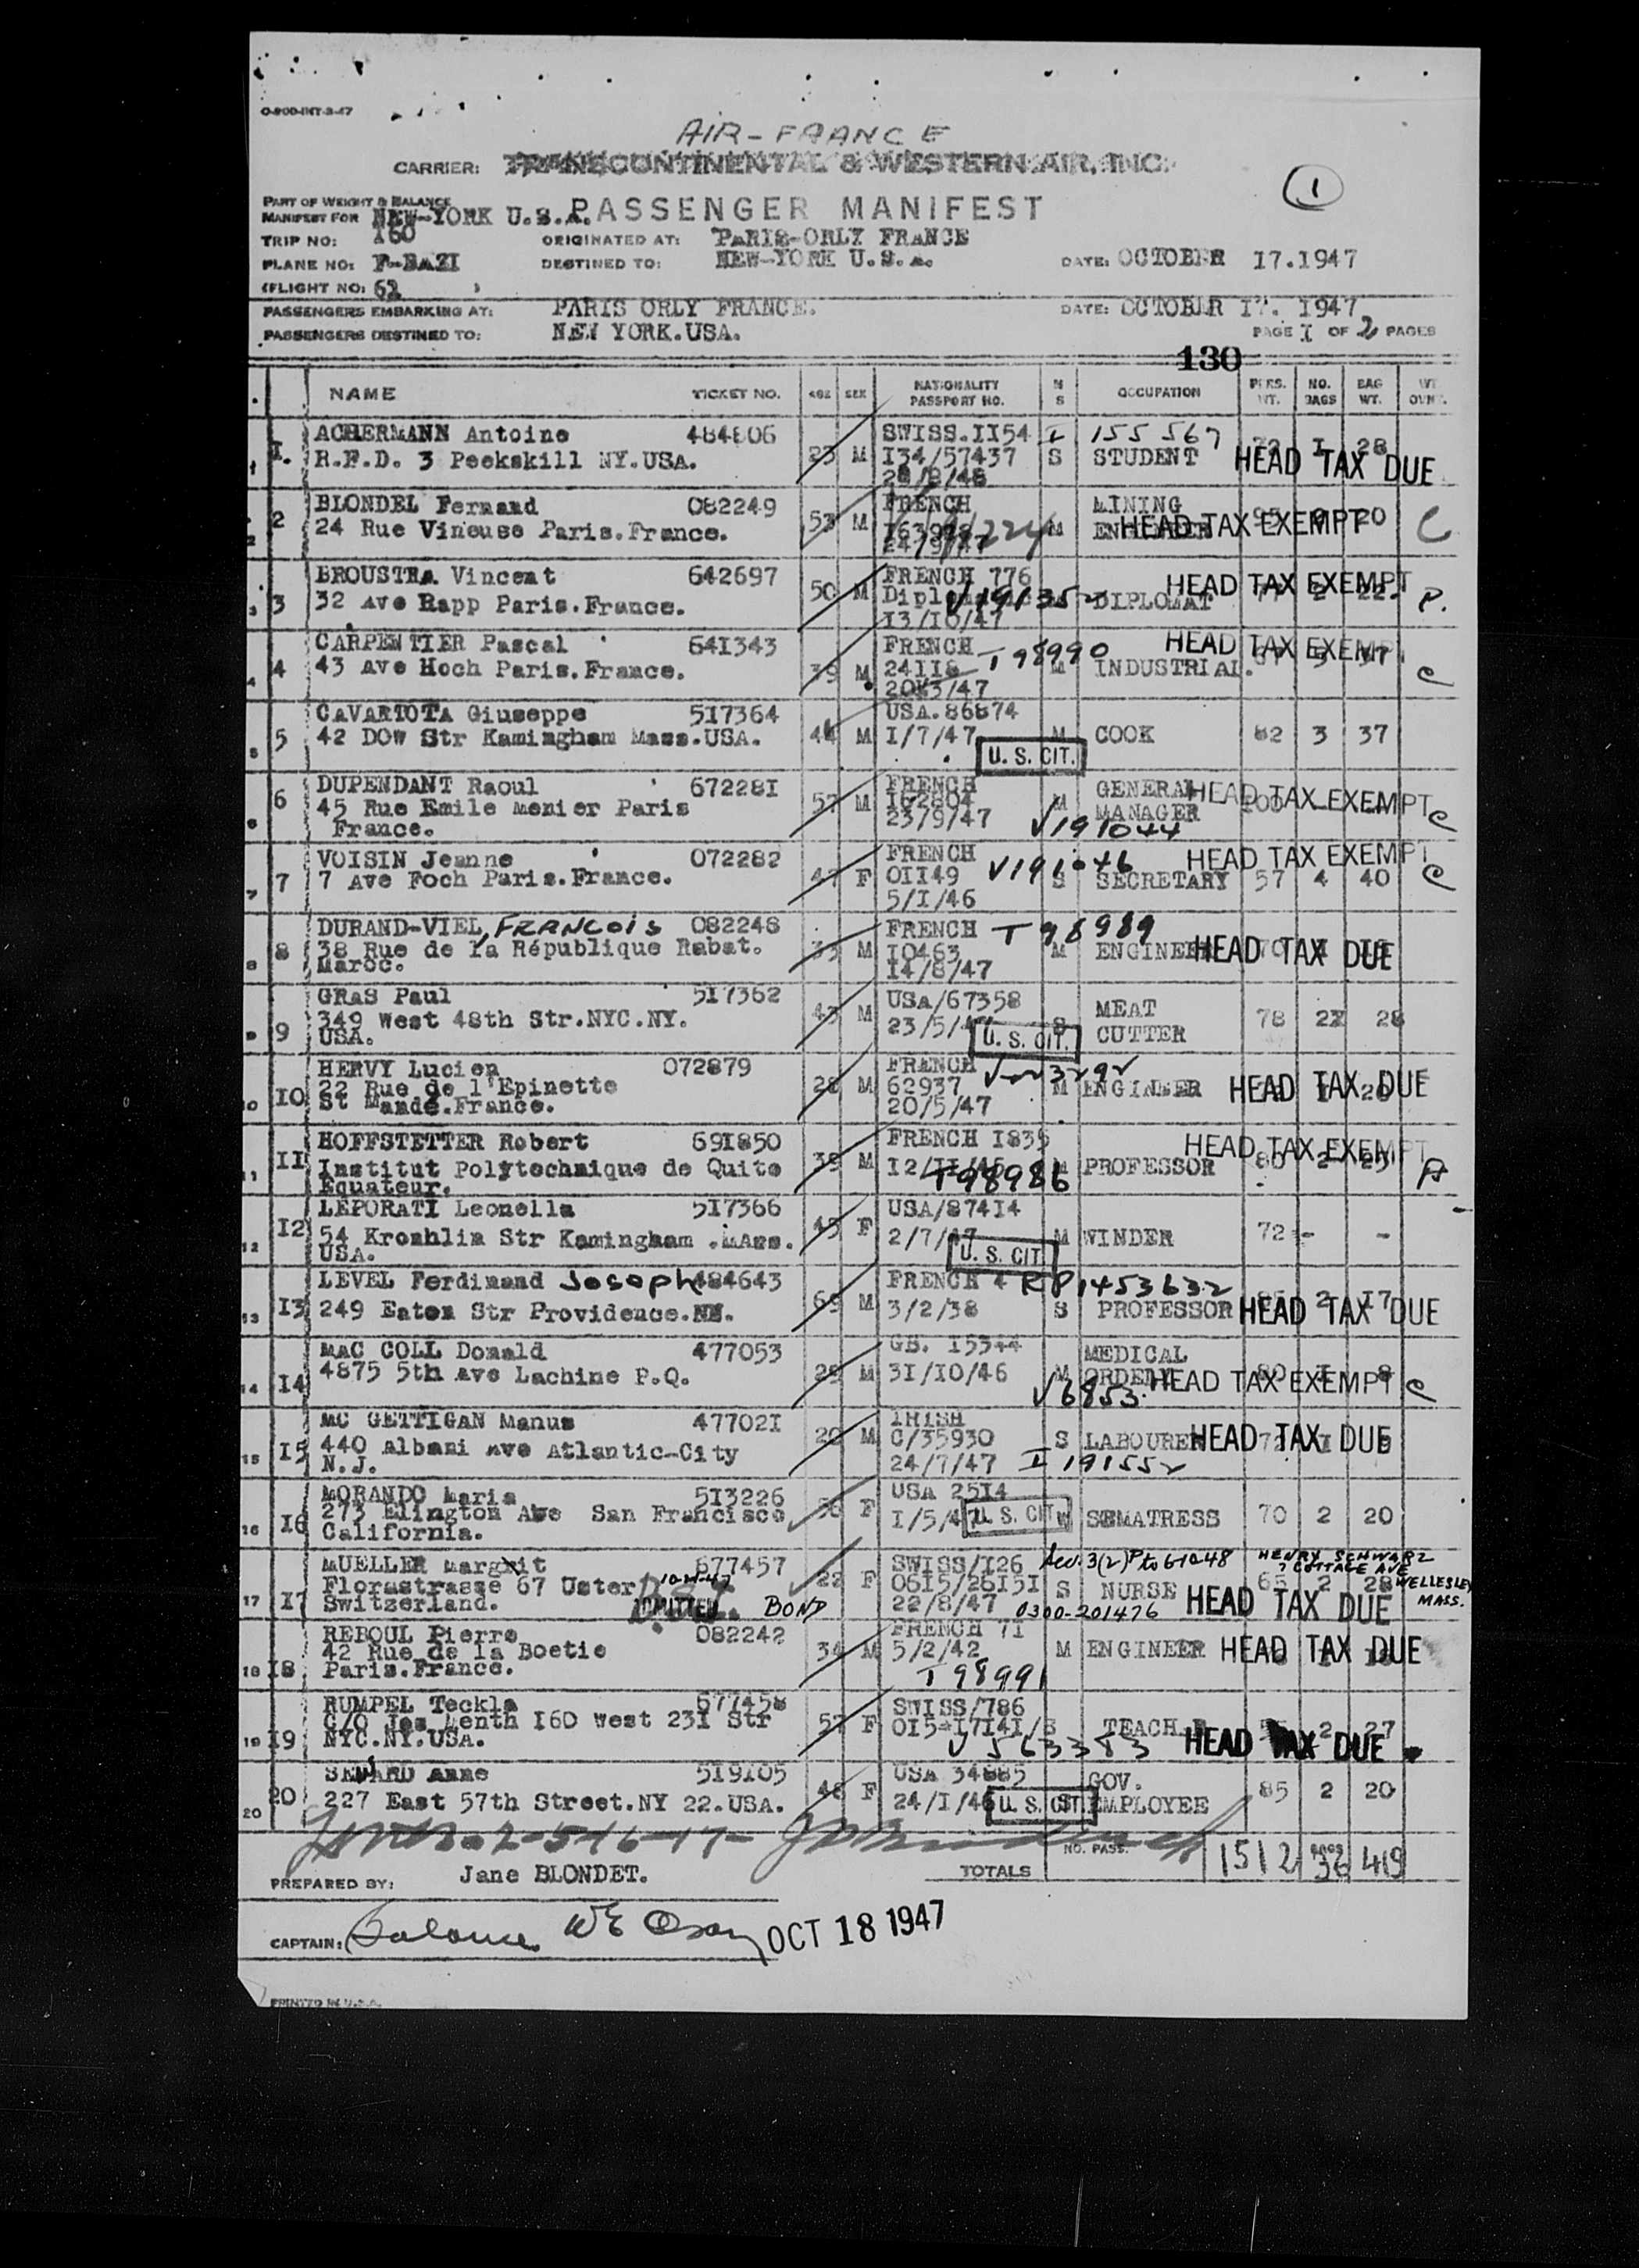 O-900-INT-3-47
AIR-FRANCE
CARRIER: TRANSCONTINENTAL & WESTERN AIR, INC.
1
PART OF WEIGHT & BALANCE
MANIFEST FOR NEW-YORK U.S.A. PASSENGER MANIFEST
TRIP NO: 160 ORIGINATED AT: PARIS-ORLY FRANCE
PLANE NO: F-BAZI DESTINED TO: NEW-YORK U.S.A. DATE: OCTOBER 17.1947
(FLIGHT NO: 62 )
PASSENGERS EMBARKING AT: PARIS ORLY FRANCE. DATE: OCTOBER 17. 1947
PASSENGERS DESTINED TO: NEW YORK.USA. PAGE I OF 2 PAGES
130
NAME TICKET NO. AGE SEX NATIONALITY PASSPORT NO. M S OCCUPATION PERS. WT. NO. BAGS BAG WT.
1 I. ACHERMANN Antoine 484806 SWISS.II54 I 155567
R.F.D. 3 Peekskill NY.USA. 23 M I34/57437 S STUDENT I 28 HEAD TAX DUE
28/8/48
2 2 BLONDEL Fernand 082249 FRENCH MINING
24 Rue Vineuse Paris.France. 53 M M HEAD TAX EXEMPT 20 C
3 3 BROUSTRA Vincent 642697 FRENCH 776 HEAD TAX EXEMPT
32 Ave Rapp Paris.France. 50 M V191352 DIPLOMAT 2 22 P.
13/10/47
4 4 CARPENTIER Pascal 641343 FRENCH T98990 HEAD TAX EXEMPT
43 Ave Hoch Paris.France. 39 M 24118 M INDUSTRIAL. C
5 5 CAVARTOTA Giuseppe 517364 USA.86874
42 DOW Str Kamingham Mass.USA. 44 M I/7/47 M COOK 62 3 37
U. S. CIT.
6 6 DUPENDANT Raoul 672281 FRENCH GENERAL HEAD TAX EXEMPT
45 Rue Emile Menier Paris 57 M 162804 M MANAGER C
France. 23/9/47 V191044
7 7 VOISIN Jeanne 072282 FRENCH V191046 HEAD TAX EXEMPT
7 Ave Foch Paris.France. 47 F OII49 S SECRETARY 57 4 40 C
5/I/46
8 8 DURAND-VIEL, FRANCOIS 082248 FRENCH T98989
38 Rue de la République Rabat. 33 M I0463 M ENGINEER HEAD TAX DUE
Maroc. I4/8/47
9 9 GRAS Paul 517362 USA/67358 MEAT
349 West 48th Str.NYC.NY. 43 M 23/5/ S CUTTER 78 28
USA. U. S. CIT.
10 IO HERVY Lucien 072879 FRENCH
22 Rue de l'Epinette 28 M 62937 M ENGINEER HEAD TAX DUE
St Mande.France. 20/5/47
11 II HOFFSTETTER Robert 691850 FRENCH I835 HEAD TAX EXEMPT
Institut Polytechnique de Quito 39 M T98986 PROFESSOR A
Equateur.
12 I2 LEPORATI Leonella 517366 USA/87414
54 Kronhlim Str Kamingham .MAss. 45 F 2/7/47 M WINDER 72 - -
USA. U. S. CIT.
13 I3 LEVEL Ferdinand Joseph 484643 FRENCH 4 RP1453632
249 Eaton Str Providence. 69 M 3/2/38 S PROFESSOR 2 I7 HEAD TAX DUE
14 I4 MAC COLL Donald 477053 GB. I5344 MEDICAL
4875 5th Ave Lachine P.Q. 29 M 3I/I0/46 M ORDERLY HEAD TAX EXEMPT C
V6853
15 I5 MC GETTIGAN Manus 477021 IRISH
440 Albani Ave Atlantic-City 20 M C/35930 S LABOURER HEAD TAX DUE
N.J. 24/7/47 I 191552
16 I6 MORANDO Maria 513226 USA 25I4
273 Elington Ave San Francisco F I/5/47 U. S. CIT. W SEMATRESS 70 2 20
California.
17 I7 MUELLER Margrit 677457 SWISS/I26 Sec. 3(2) P to 6-10-48 HENRY SCHWARZ
Florastrasse 67 Uster 10-21-47 22 F 06I5/26I5I S NURSE 65 2 28 7 COTTAGE AVE WELLESLEY
Switzerland. ADMITTED BOND 22/8/47 0300-201476 HEAD TAX DUE MASS.
18 I8. REBOUL Pierre 082242 FRENCH 7I
42 Rue de la Boetie 34 M 5/2/42 M ENGINEER HEAD TAX DUE
Paris.France. T98991
19 I9 RUMPEL Teckla 677458 SWISS/786
C/O Jos Menth I60 West 23I Str 57 F 0I5-I7I4I/S TEACHER 2 27
NYC.NY.USA. V563383 HEAD TAX DUE
20 20 SEWARD Anne 519105 USA 34885 GOV.
227 East 57th Street.NY 22.USA. 48 F 24/I/46 U. S. CIT. EMPLOYEE 85 2 20
PREPARED BY: Jane BLONDET. TOTALS NO. PASS. 1512 BAGS 36 419
CAPTAIN: OCT 18 1947
PRINTED IN U.S.A.